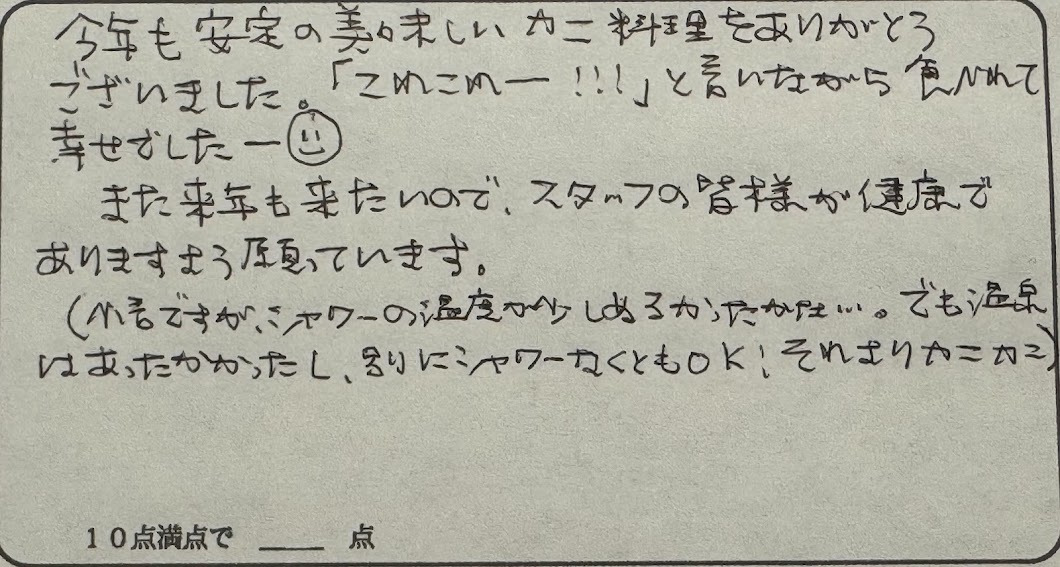 今年も安定の美味しいカニ料理をありがとう
ございました。「これこれー!!!」と言いながら食べれて
幸せでしたー
また来年も来たいので、スタッフの皆様が健康で
ありますよう願っています。
(小言ですが、シャワーの温度が少しぬるかったかな…。でも温泉
はあったかかったし、別にシャワーなくともOK!それよりカニカニ)
10点満点で ____ 点